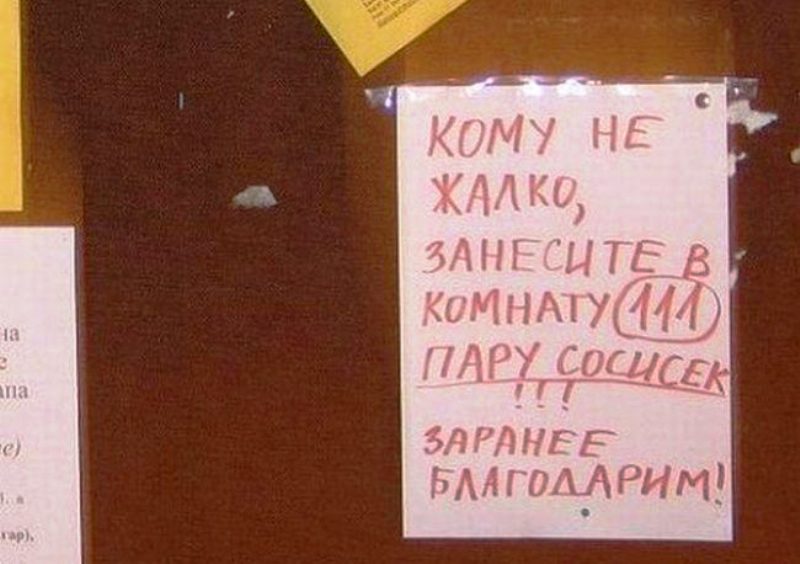 КОМУ НЕ
ЖАЛКО,
ЗАНЕСИТЕ В
КОМНАТУ 111
ПАРУ СОСИСЕК
!!!
ЗАРАНЕЕ
БЛАГОДАРИМ!
на
е